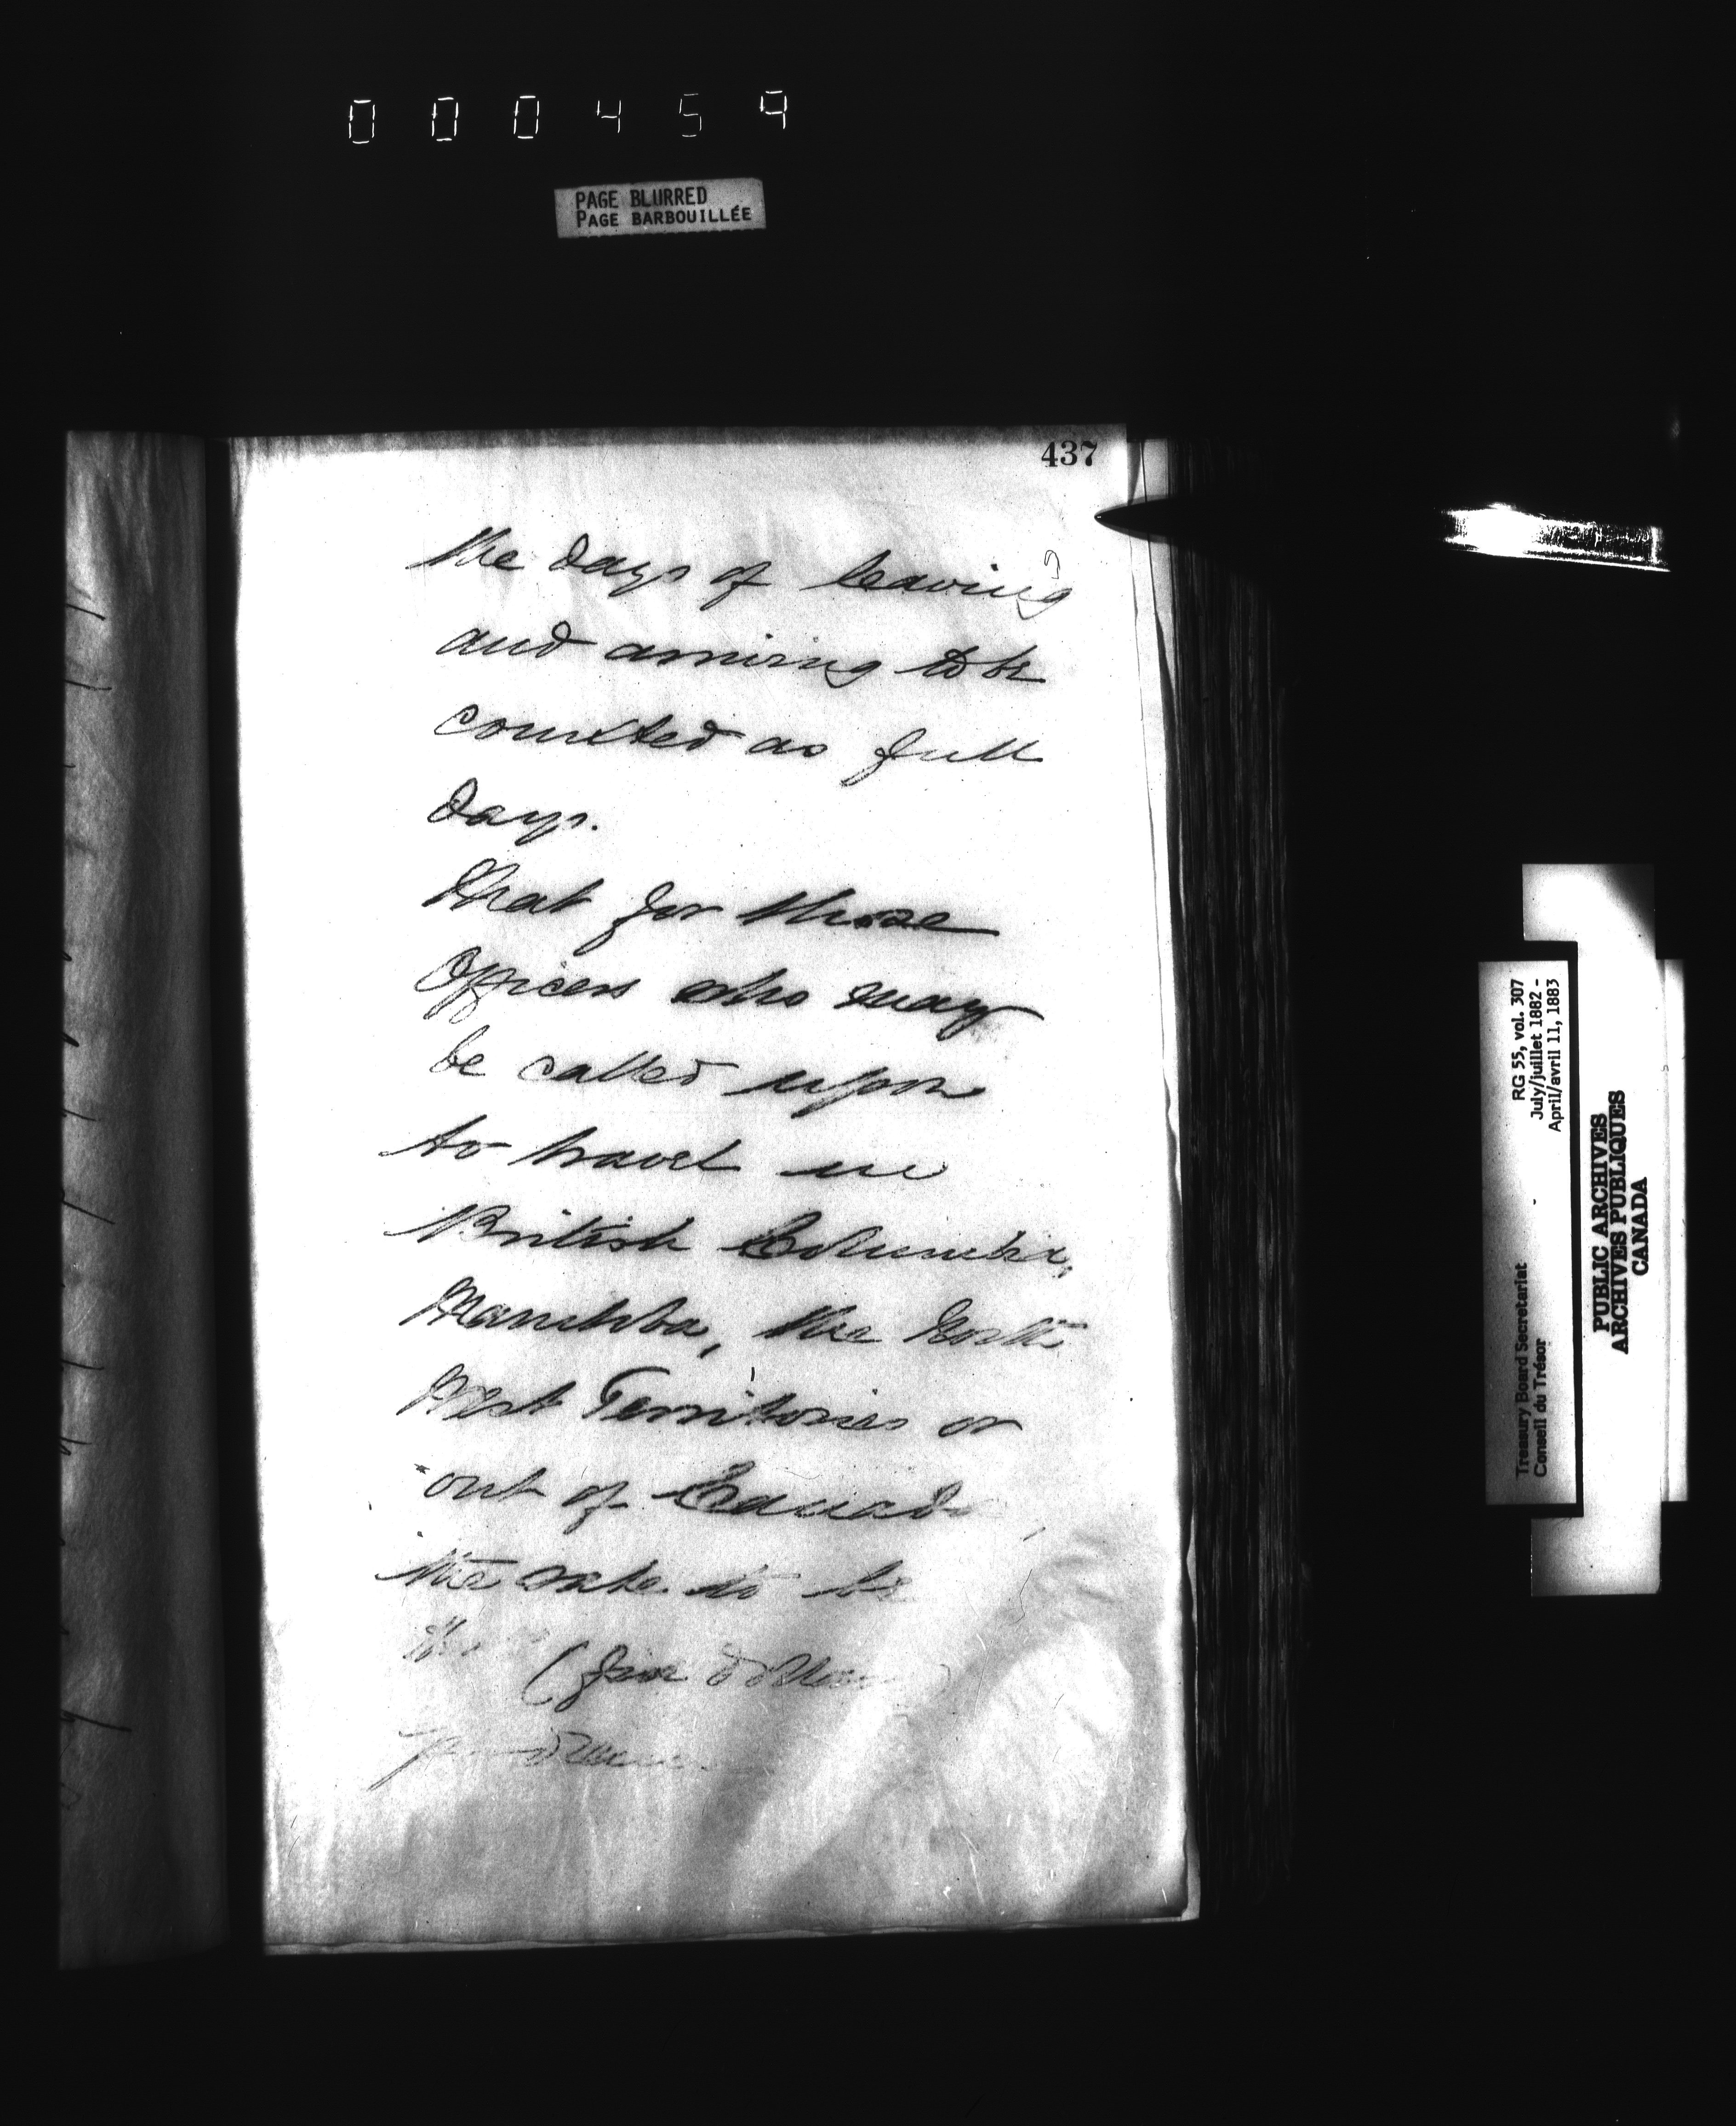 000459
PAGE BLURRED
PAGE BARBOUILLÉE
437
the days of leaving
and arriving to be
counted as full
days.
That for those
Officers who may
be called upon
to travel in
British Columbia,
Manitoba, the North
West Territories or
out of Canada,
the rate to be
(five dollars)
RG 55, vol. 307
July/juillet 1882 -
April/avril 11, 1883
Treasury Board Secretariat -
Conseil du Trésor
PUBLIC ARCHIVES
ARCHIVES PUBLIQUES
CANADA